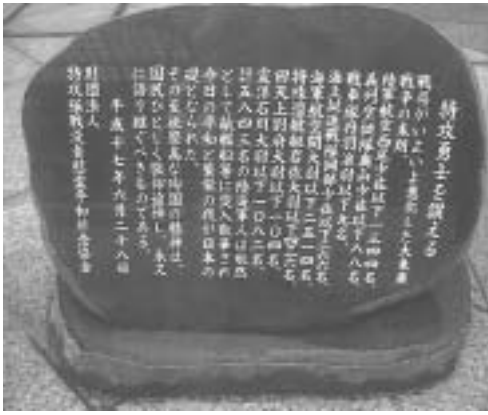 特攻勇士を讃える
戦局がいよいよ悪化した大東亜
戦争の末期
陸軍航空 以下一三四四名
義烈空挺隊 以下八八名
戦車 以下九名
海上挺進戦隊 以下二六六名
海軍航空関大尉以下二五一四名
特殊潜航艇 佐大尉以下四四六名
回天上別府大尉以下一〇四名
震洋石川大尉以下一〇八二名
計五八四三名の陸海軍人は敢然
として敵艦船等に突入散華され
今日の平和と繁栄の我が日本の
礎となられた
その至純崇高な殉国の精神は
国民ひとしく敬仰追悼し 永久
に語り継ぐべきものである
平成十七年六月二十八日
財団法人
特攻隊戦没者慰霊平和祈念協会